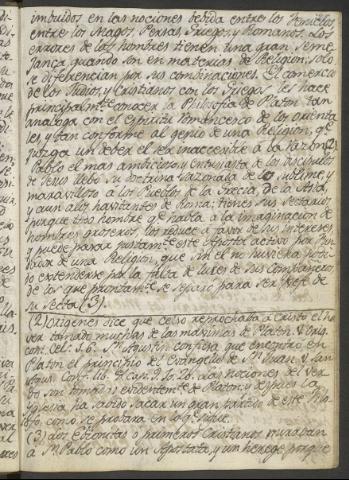 imbuidos en las nociones bebida entre los Fenicios
entre los Magos, Persas, Griegos, y Romanos. Los
errores de los hombres tienen una gran seme
janza quando son en materias de Religion; solo
se diferencian por sus combinaciones. El comercio
de los Judios, y Cristianos con los Griegos les hace
principalmte conocer la Philosofia de Platon tan
analoga con el espiritu Romancesco de los orienta
les, y tan conforme al genio de una Religion, qe
juzga un deber el ser inaccesible a la Razon (2)
Pablo el mas ambicioso, y entusiasta de los discipulos
de Jesus llebó su doctrina sazonada de lo sublime, y
maravilloso a los Pueblos de la Grecia, de la Asia,
y aun a los habitantes de Roma; tienes sus sectarios,
porque todo hombre qe habla a la imaginacion de
hombres groseros, los reduce a favor de sus intereses,
y puede pasar justamte este Apostol activo por Fun
dador de una Religion, que sin el no hubiera podi
do extenderse por la falta de luces de sus Compañeros,
de los que prontamte se separó para ser Xefe de
su secta (3).
(2) Origenes dice que Celso reprochaba a Cristo el ha
ver tomado muchas de las maximas de Platon V. Orig.
cont. Cel. S. 6. Sn Agustin confiesa que encontró en
Platon el principio del Evangelio de Sn Juan: V. San
Agus. Conf. lib. 7. Cap. 9. 10. 20. Las nociones del Ver
bo son tomadas evidentemte de Platon, y despues la
Iglesia ha savido sacar un gran partido de este Filo
fo, como se probara en lo qe sigue.
(3) Los Ebionitas o primeros Cristianos miraban
a Sn Pablo como un Apostata, y un herege, porque